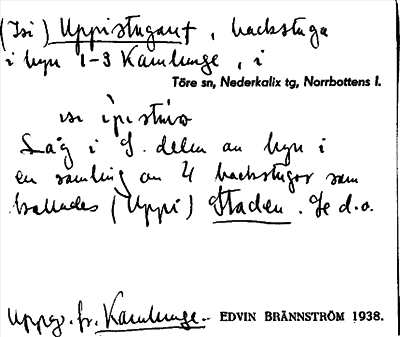 (Isi) Uppistugan†, backstuga
i byn 1-3 Kamlunge, i
Töre sn, Nederkalix tg, Norrbottens l.
isi ıpistúω
Låg i S. delen av byn i
en samling av 4 backstugor som
kallades (Uppi) Staden. Se d.o.
Uppg. fr. Kamlunge. EDVIN BRÄNNSTRÖM 1938.